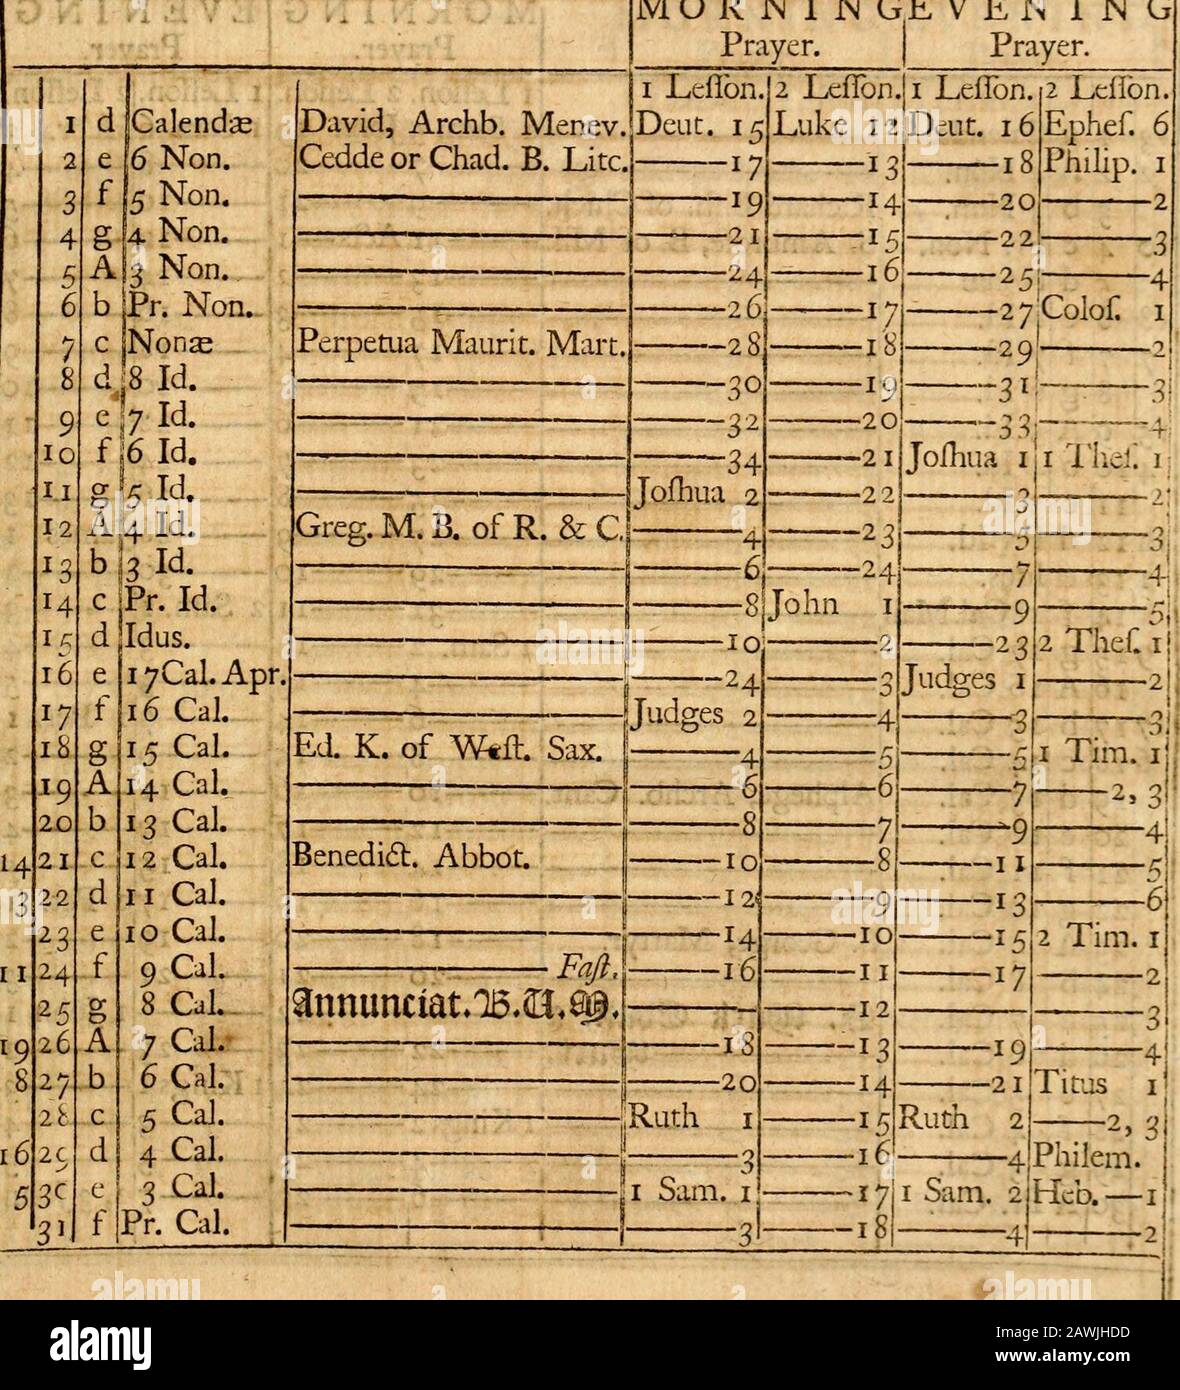 MORNING EVENING
Prayer. Prayer.
1 Leſſon. 2 Leſſon. 1 Leſſon. 2 Leſſon.
1 d Calendæ David, Archb. Menev. Deut. 15 Luke 12 Deut. 16 Epheſ. 6
2 e 6 Non. Cedde or Chad. B. Litc. ——17 ——13 ——18 Philip. 1
3 f 5 Non. ———— ——19 ——14 ——20 ——2
4 g 4 Non. ———— ——21 ——15 ——22 ——3
5 A 3 Non. ———— ——24 ——16 ——25 ——4
6 b Pr. Non. ———— ——26 ——17 ——27 Coloſ. 1
7 c Nonæ Perpetua Maurit. Mart. ——28 ——18 ——29 ——2
8 d 8 Id. ———— ——30 ——19 ——31 ——3
9 e 7 Id. ———— ——32 ——20 ——33 ——4
10 f 6 Id. ———— ——34 ——21 Joſhua 1 1 Theſ. 1
11 g 5 Id. ———— Joſhua 2 ——22 ——3 ——2
12 A 4 Id. Greg. M. B. of R. & C. ——4 ——23 ——5 ——3
13 b 3 Id. ———— ——6 ——24 ——7 ——4
14 c Pr. Id. ———— ——8 John 1 ——9 ——5
15 d Idus. ———— ——10 ——2 ——23 2 Theſ. 1
16 e 17 Cal. Apr. ———— ——24 ——3 Judges 1 ——2
17 f 16 Cal. ———— Judges 2 ——4 ——3 ——3
18 g 15 Cal. Ed. K. of Weſt. Sax. ——4 ——5 ——5 1 Tim. 1
19 A 14 Cal. ———— ——6 ——6 ——7 ——2, 3
20 b 13 Cal. ———— ——8 ——7 ——9 ——4
14 21 c 12 Cal. Benedict. Abbot. ——10 ——8 ——11 ——5
3 22 d 11 Cal. ———— ——12 ——9 ——13 ——6
23 e 10 Cal. ———— ——14 ——10 ——15 2 Tim. 1
11 24 f 9 Cal. ———— Faſt. ——16 ——11 ——17 ——2
25 g 8 Cal. Annunciat. B. U. M. ———— ——12 ———— ——3
19 26 A 7 Cal. ———— ——18 ——13 ——19 ——4
8 27 b 6 Cal. ———— ——20 ——14 ——21 Titus 1
28 c 5 Cal. ———— Ruth 1 ——15 Ruth 2 ——2, 3
16 29 d 4 Cal. ———— ——3 ——16 ——4 Philem.
5 30 e 3 Cal. ———— 1 Sam. 1 ——17 1 Sam. 2 Heb.—1
31 f Pr. Cal. ———— ——3 ——18 ——4 ——2
alamy
Image ID: 2AWJHDD
www.alamy.com